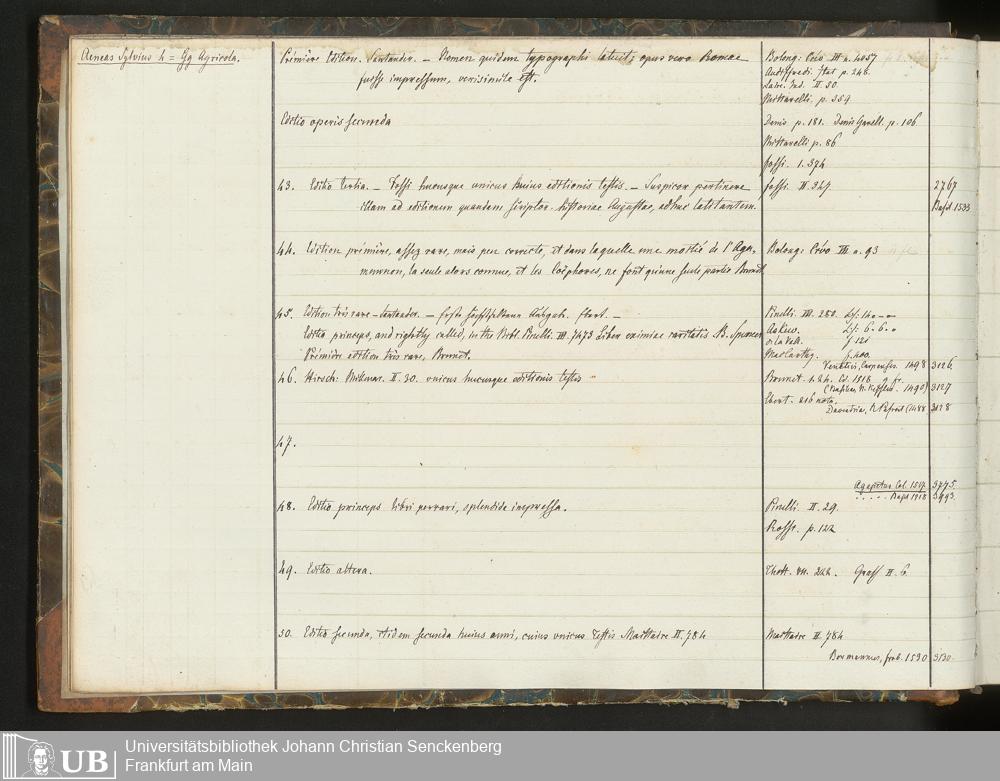 Aeneas Sylvius 4 = Gg Agricola.
Première Edition. Santander. — Nomen quidem typographi latuit; opus vero Romae
fuisse impressum, verisimile est.
Bolong. Crevo III n. 4057
Audiffredi. Ital p. 246.
Laire. Ind. II. 30.
Mittarelli. p. 359.
Editio operis secunda
Denis p. 181. Denis Garell. p. 106.
Mittarelli p. 86
Fossi. 1. 374
43. Editio tertia. — Fossi hucusque unicus huius editionis testis. — Suspicor pertinere
illam ad editionem quandam Scriptor. historiae Augustae, adhuc latitantem.
Fossi. III. 329.
2767
Basil. 1533
44. Edition première, assez rare, mais peu correcte, et dans laquelle une moitié de l'Aga-
memnon, la seule alors connue, et les Coëphores, ne font qu'une seule partie Brunet.
Bolong. Crevo III n. 93
45. Edition très rare Santander. — Erste Ausgab. —
Editio princeps, and rightly called, in the Bibl. Pinelli. III. 7473 Liber eximiae raritatis B. Spencer
Première edition très rare, Brunet.
Pinelli. III. 280.
Askew. 6. 6. 0
de la Vall. f 121
MacCarthy. f. 400.
Venetiis, 1498 3126.
46. Hirsch. II. 30. unicus hucusque editionis testis
Brunet. 1. 24. Ed. 1518 9 fr.
(Basileae, N. Kessler. 1490) 3127
Ebert. 216 nota.
Daventriae, R. Pafraet (1488 3128
47.
Agapetus Col. 1517. 3775.
Basil 1518 3993.
48. Editio princeps libri perrari, splendide impressa.
Pinelli. II. 29.
Rossi. p. 122
49. Editio altera.
Thott. VII. 242. II. 6.
50. Editio secunda, itidem secunda huius anni, cuius unicus Testis Maittaire II. 784
Maittaire II. 784
Bermannus, frob. 1530 3130.
UB
Universitätsbibliothek Johann Christian Senckenberg
Frankfurt am Main